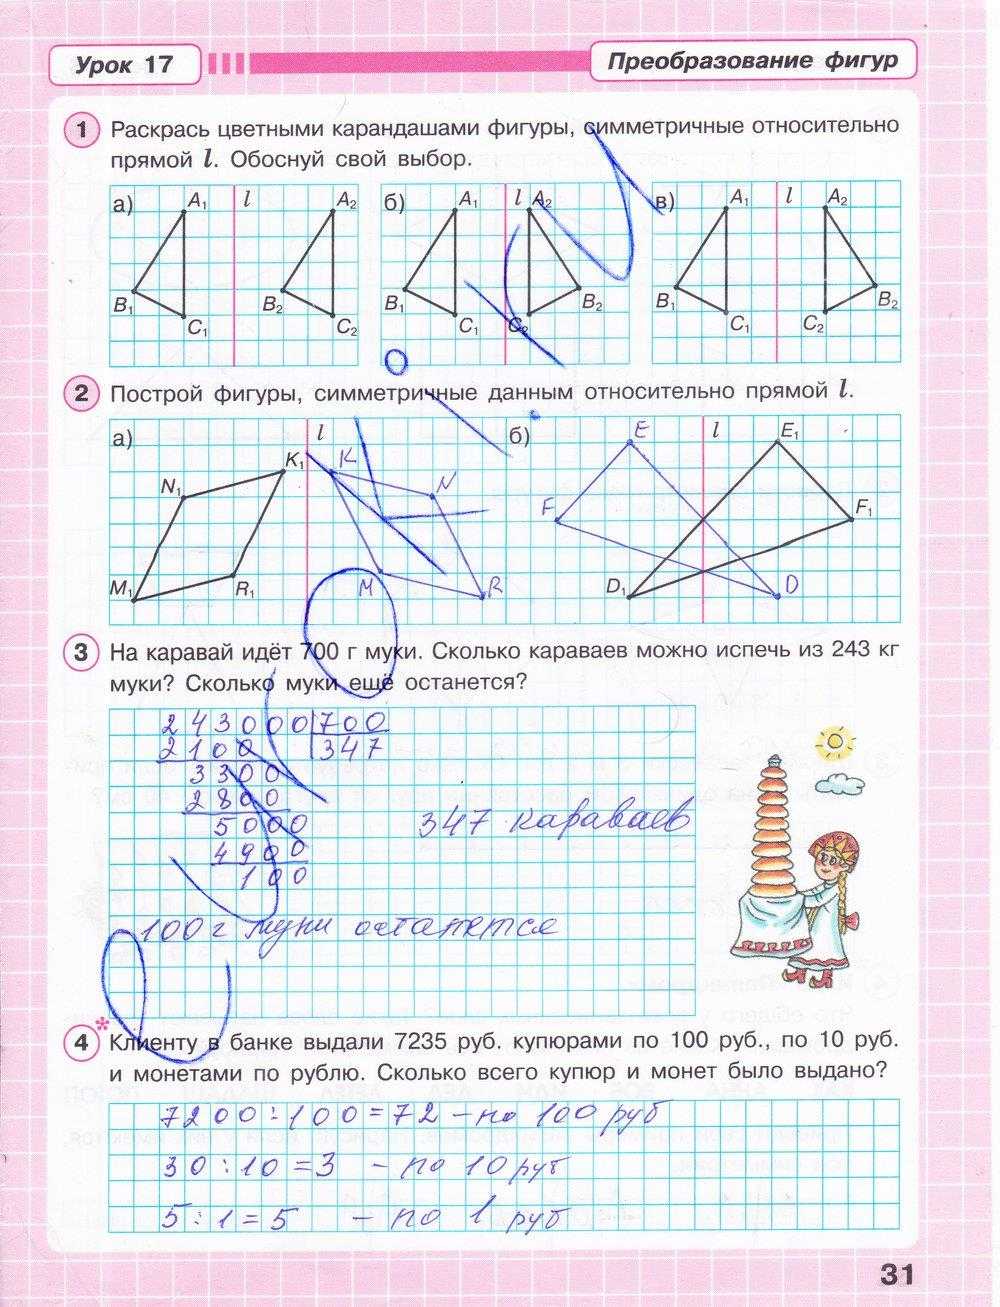 Урок 17
Преобразование фигур
1 Раскрась цветными карандашами фигуры, симметричные относительно
прямой l. Обоснуй свой выбор.
а) A₁ l A₂ B₁ B₂ C₁ C₂
б) A₁ l A₂ B₁ B₂ C₁ C₂
в) A₁ l A₂ B₁ B₂ C₁ C₂
2 Построй фигуры, симметричные данным относительно прямой l.
а) l K₁ K N₁ N M₁ R₁ M R
б) E l E₁ F F₁ D₁ D
3 На каравай идёт 700 г муки. Сколько караваев можно испечь из 243 кг
муки? Сколько муки ещё останется?
243000 700
2100 347
3300
2800
5000
347 караваев
4900
100
100 г муки останется
4* Клиенту в банке выдали 7235 руб. купюрами по 100 руб., по 10 руб.
и монетами по рублю. Сколько всего купюр и монет было выдано?
7200 : 100 = 72 – по 100 руб
30 : 10 = 3 – по 10 руб
5 : 1 = 5 – по 1 руб
31